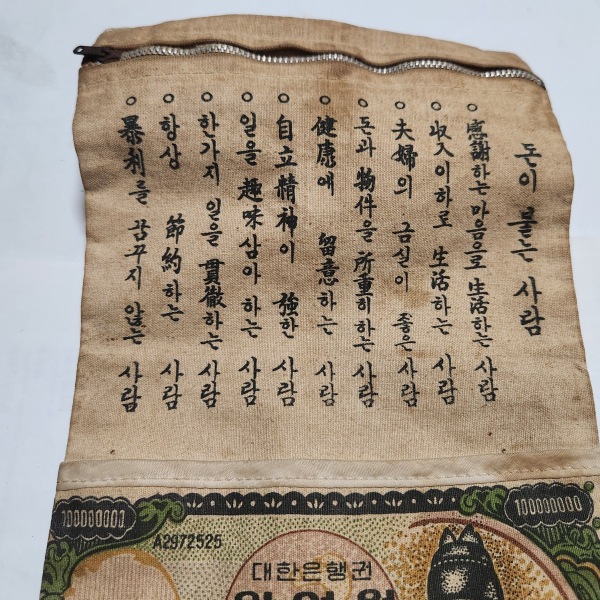 돈이 붙는 사람
○ 感謝하는 마음으로 生活하는 사람
○ 収入이하로 生活하는 사람
○ 夫婦의 금실이 좋은 사람
○ 돈과 物件을 所重히하는 사람
○ 健康에 留意하는 사람
○ 自立精神이 強한 사람
○ 일을 趣味삼아 하는 사람
○ 한가지 일을 貫徹하는 사람
○ 항상 節約하는 사람
○ 暴利를 꿈꾸지 않는 사람
100000000 100000000
A2972525
대한은행권